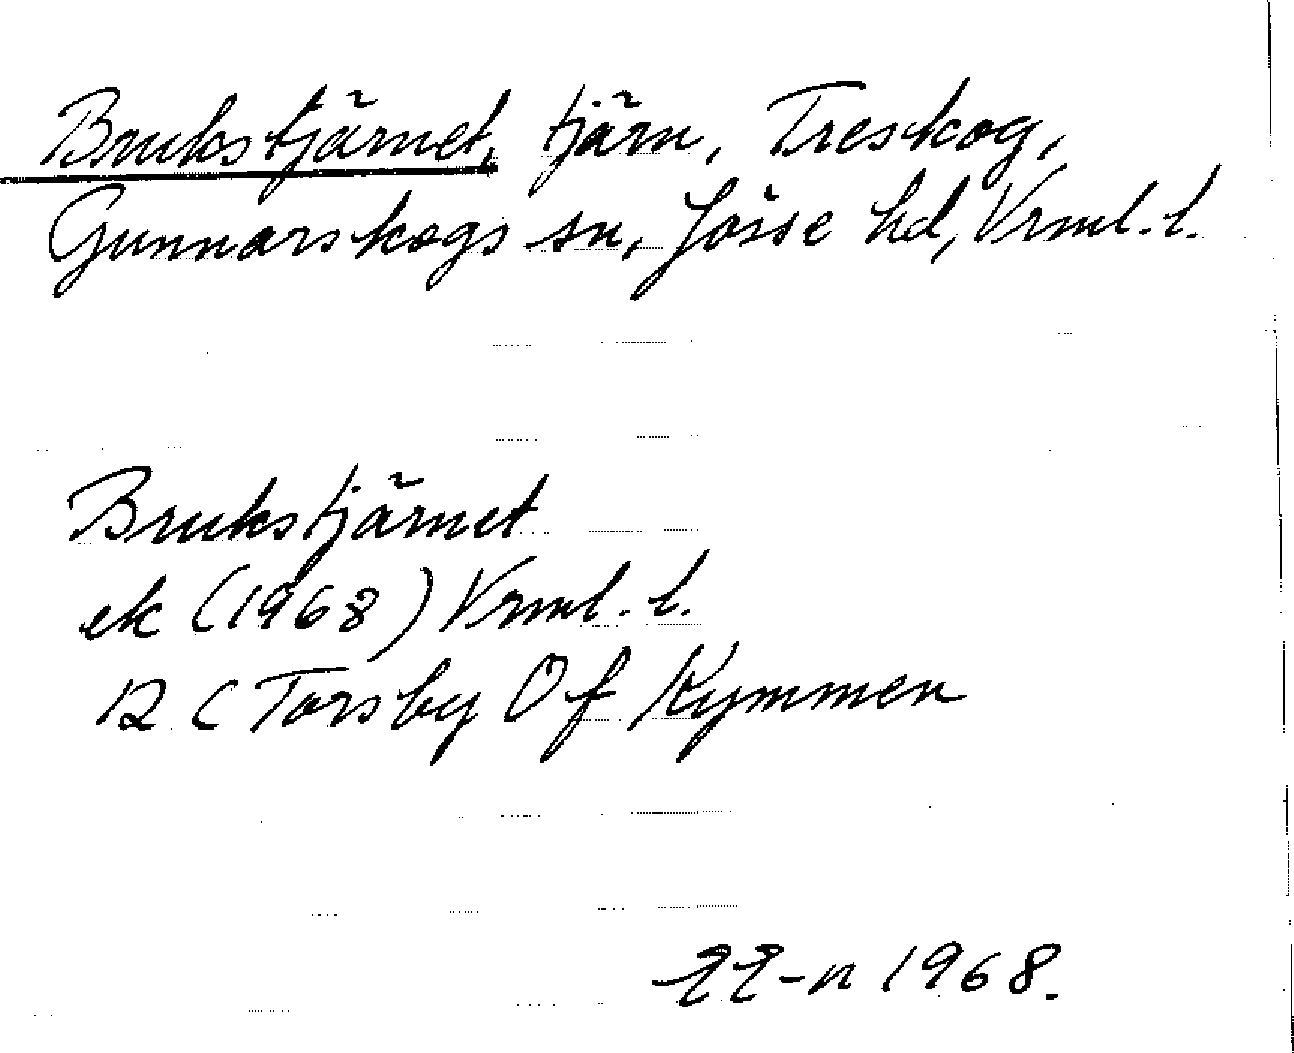 Brukstjärnet, tjärn, Treskog,
Gunnarskogs sn, Jösse hd, Vrml. l.
Brukstjärnet
ek (1968) Vrml. l.
12 C Torsby 0 f Kymmen
EE-n 1968.